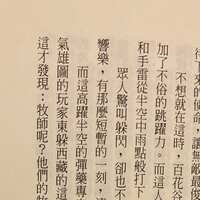 往下來的使命，讓無敵最俊
不想就在這時，百花谷
加了不俗的跳躍力。而這人
和手雷從半空中雨點般打下
眾人驚叫躲閃，卻也不
響樂，有那麼短暫的一刻，這
而這高躍半空的彈藥專
氣雄圖的玩家東躲西藏的這
這才發現：牧師呢？他們的牧